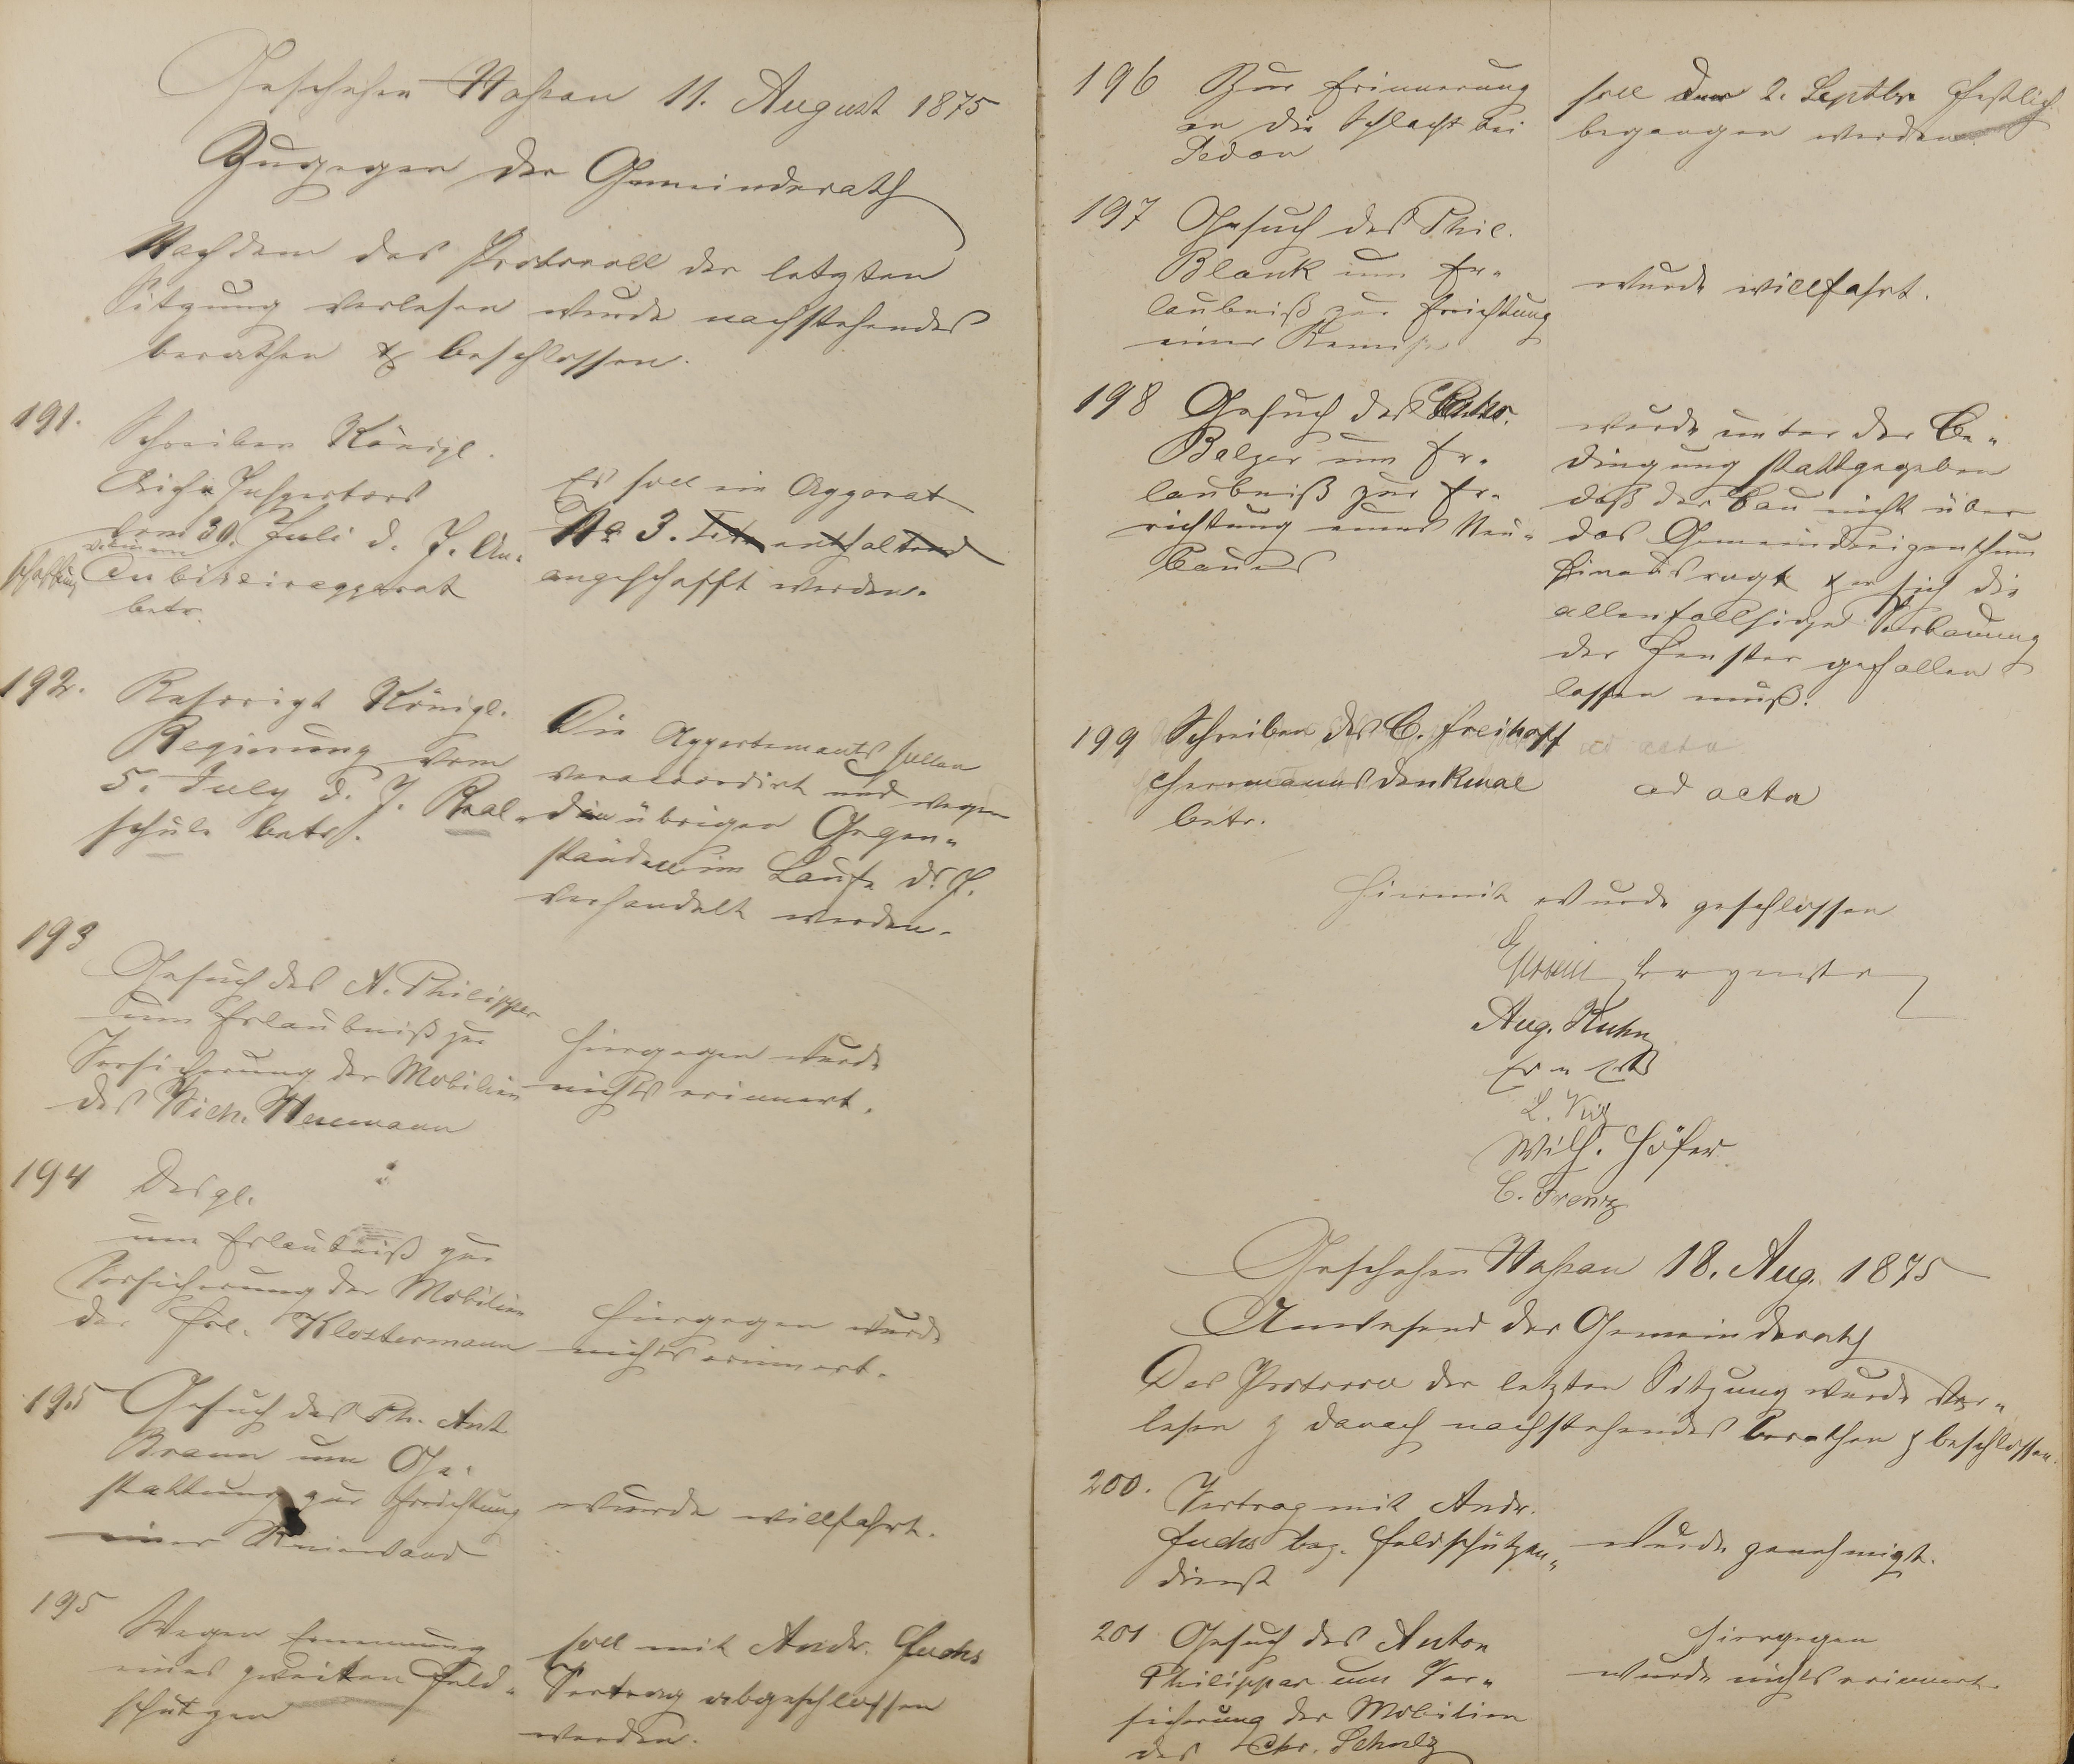 Geschehen Nassau 11. August 1875
Zugegen der Gemeinderath
Nachdem das Protocoll der letzten
Sitzung verlesen wurde nachstehendes
berathen & beschlossen.
191.
Schreiben Königl.
Aich-Inspectors
vom 30. Juli d. J. An-
schaffung
Cubiziraparat
betr.
Es soll ein Apparat
No 3. enthaltend
angeschafft werden.
192.
Rescript Königl.
Regierung vom
5. July d. J. Real-
schule betr.
Die Appertements sollen
veraccordirt und wegen
den übrigen Gegen-
ständen im Laufe d. J.
verhandelt werden.
193
Gesuch des A. Philippar
um Erlaubniß zur
Versicherung der Mobilien
des Wich. Heumann
Hiergegen wurde
nichts erinnert.
194
Desgl.
um Erlaubniß zur
Versicherung der Mobilien
der Frl. Klostermann
Hiergegen wurde
nichts erinnert.
195
Gesuch des Ph. Ant.
Braun um Ge-
stattung zur Errichtung
einer Kniewand
wurde willfahrt.
195
Wegen Ernennung
eines zweiten Feld-
schützen
soll mit Andr. Fuchs
Vertrag abgeschlossen
werden.
196
Zur Erinnerung
an die Schlacht bei
Sedan
soll der 2. Septbr. festlich
begangen werden
197
Gesuch des Phil.
Blank um Er-
laubniß zur Errichtung
einer Remise
wurde willfahrt.
198
Gesuch des
Balzer um Er-
laubniß zur Er-
richtung eines Neu-
baues
wurde unter der Be-
dingung stattgegeben
daß der Bau nicht über
das Gemeindeeigenthum
hinausragt & er sich die
allenfallsige Verbauung
der Fenster gefallen
lassen muß.
199
Schreiben des C. Freihoff
Hermannsdenkmal
betr.
ad acta
ad acta
Hiermit wurde geschlossen
Aug. Kuhn
Wilh. Höfer
Geschehen Nassau 18. Aug. 1875
Anwesend der Gemeinderath
Das Protocoll der letzten Sitzung wurde ver-
lesen & danach nachstehendes berathen & beschlossen.
200.
Vertrag mit Andr.
Fuchs bez. Feldschützen-
dienst
wurde genehmigt.
201
Gesuch des Anton
Philippar um Ver-
sicherung der Mobilien
des Chr. Schulz
Hiergegen
wurde nichts erinnert.